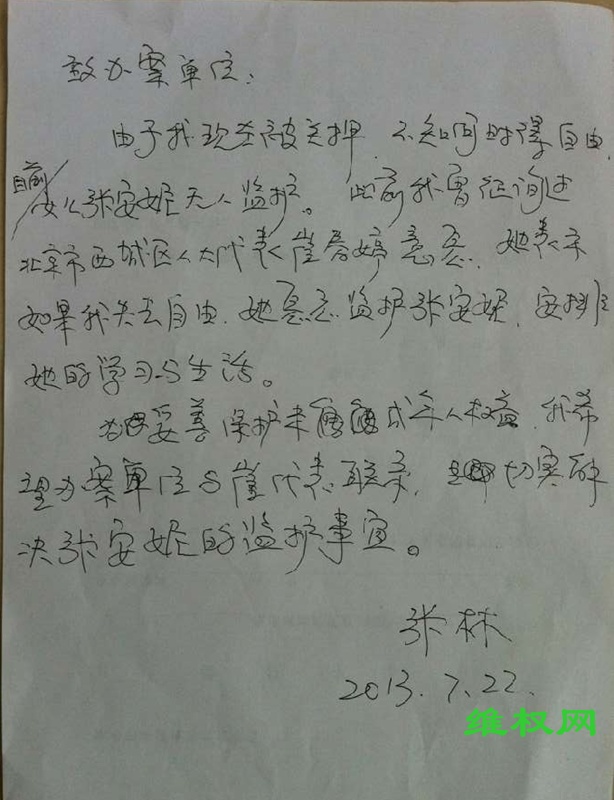 致办案单位:
由于我现在被关押,不知何时得自由,
目前
女儿张安妮无人监护。此前我曾征询过
北京市西城区人大代表崔春婷意愿,她表示
如果我失去自由,她愿意监护张安妮,安排
她的学习与生活。
妥善保护未成年人权益,我希
望办案单位与崔代表联系,切实解
决张安妮的监护事宜。
张林
2013.7.22.
维权网